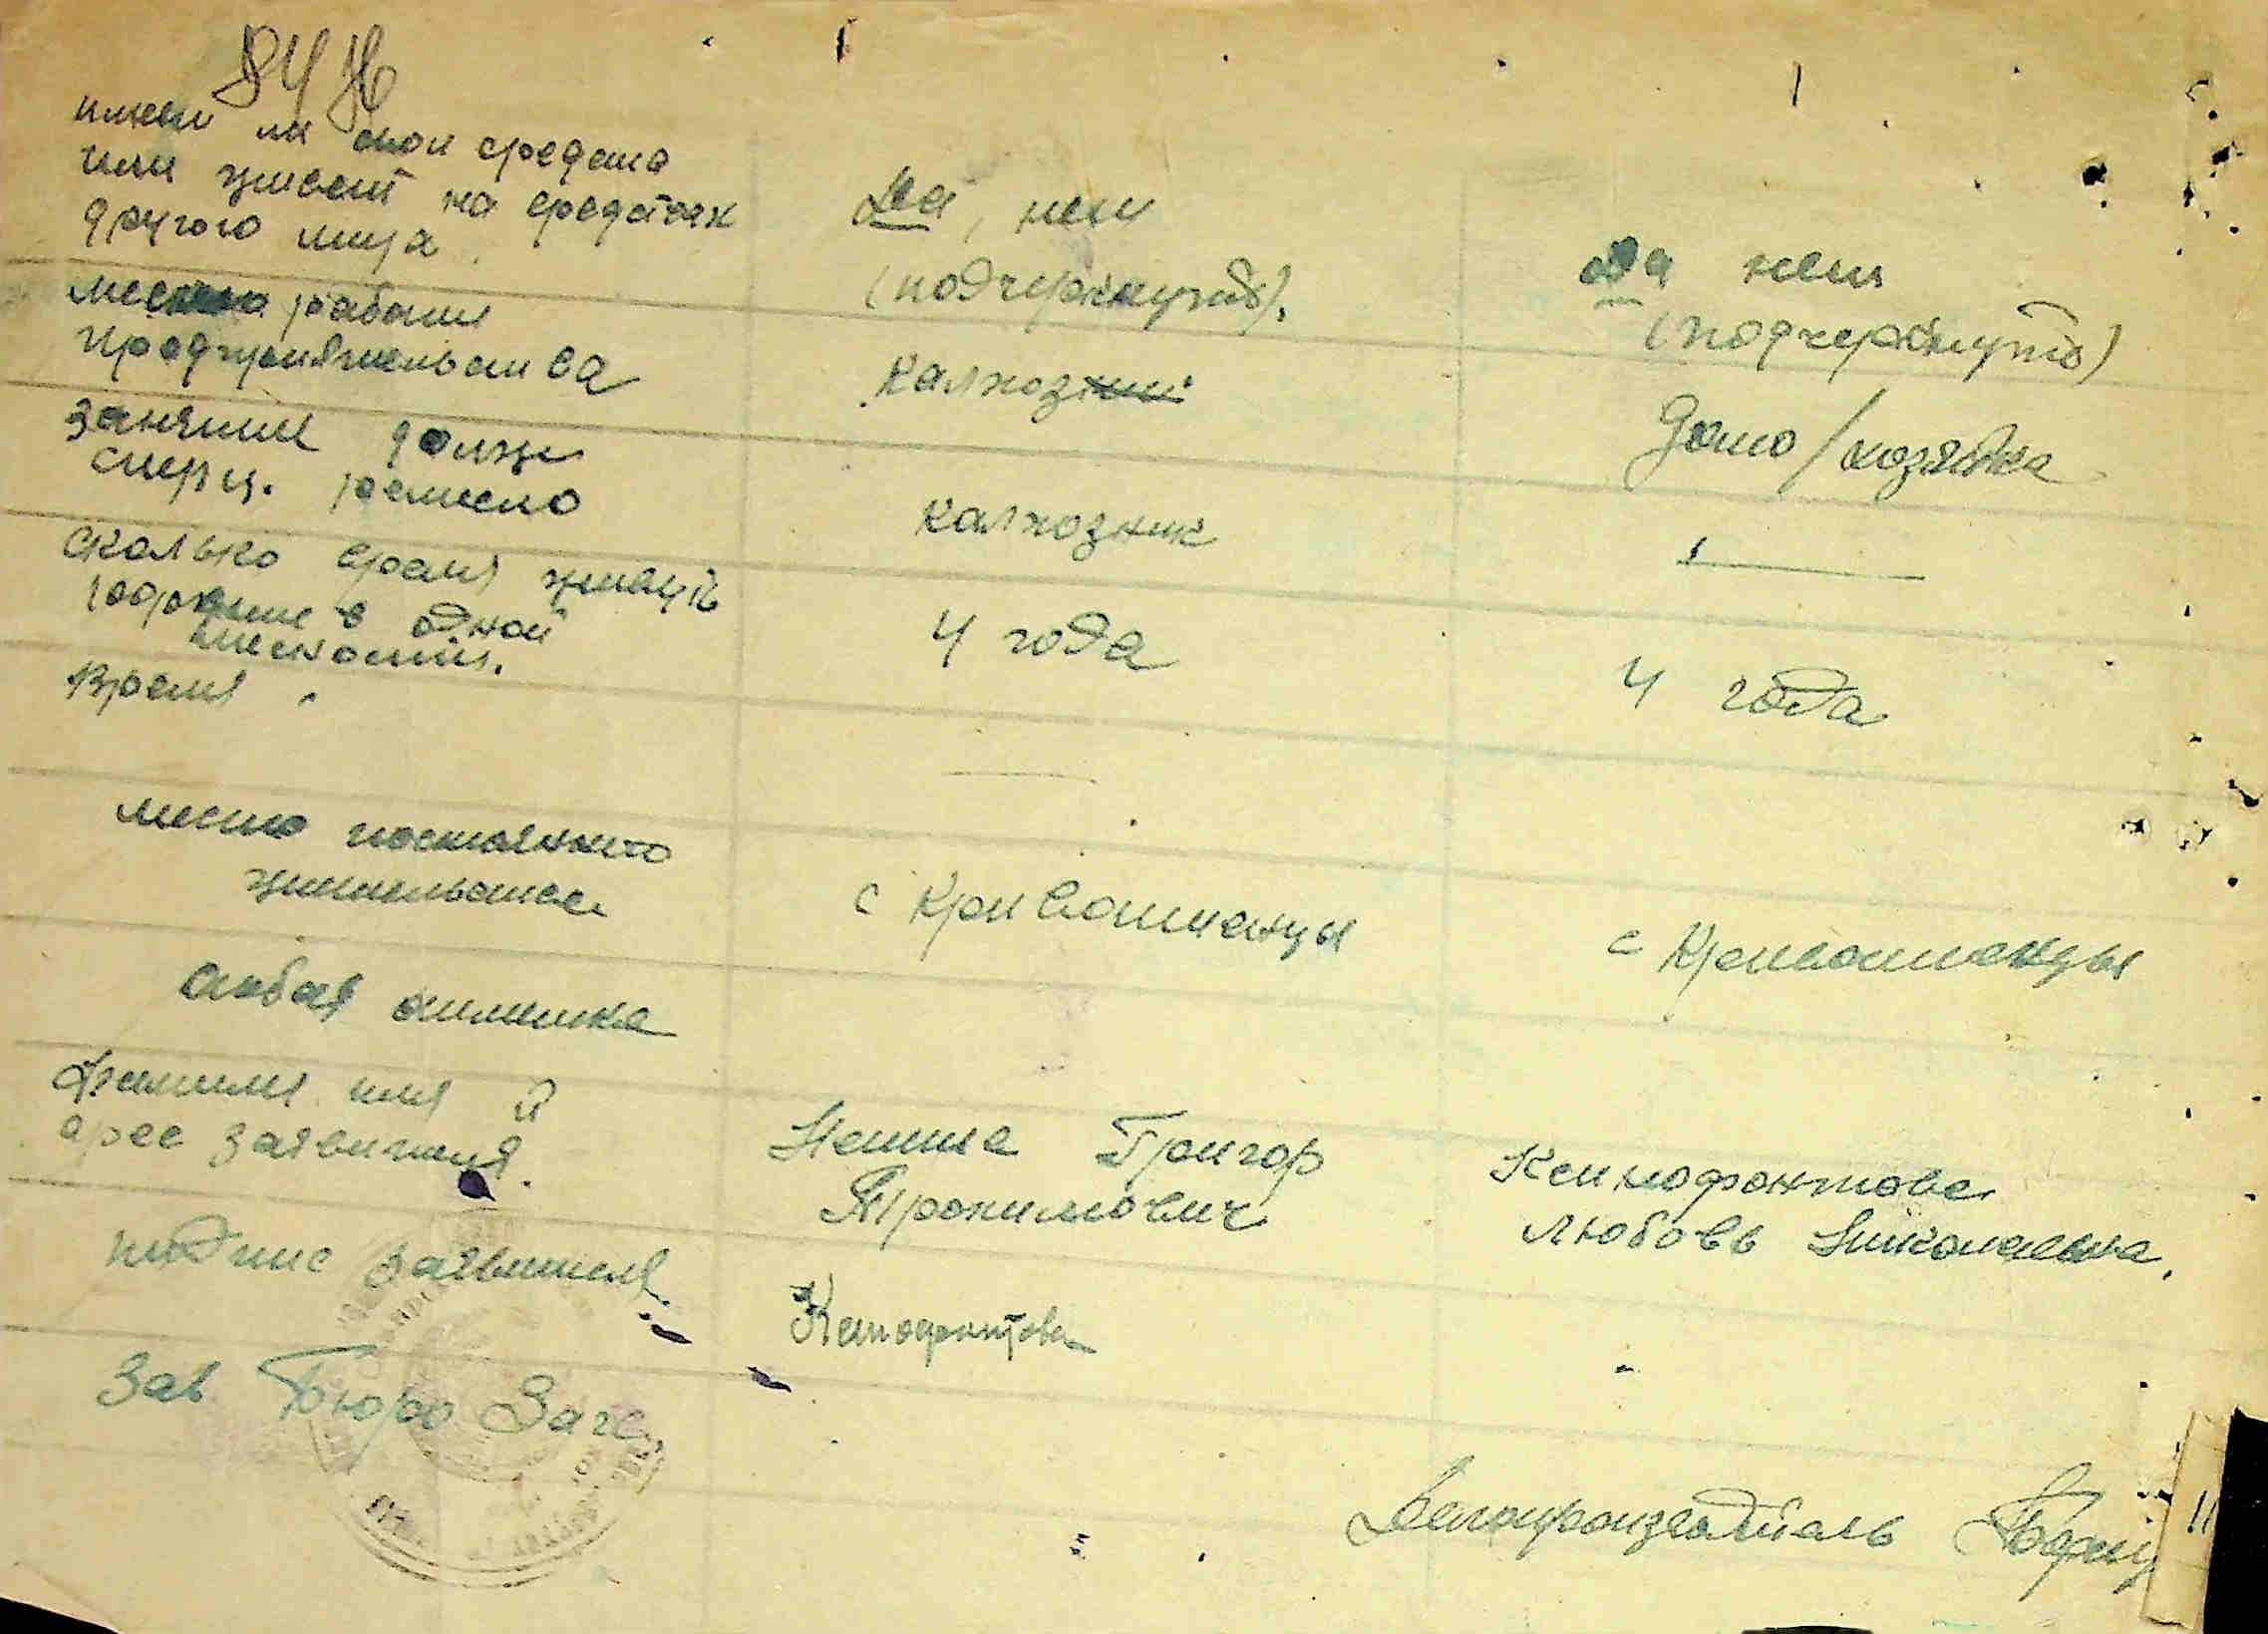 имеет ли свои средства
или живет на средствах
другого лица.
Да, нет
(подчеркнуть).
Да нет
(подчеркнуть)
место работы
предприятельства
калхоз
домо/хозяйка
занятие должн
специ. ремесло
калхозник
сколько время живут
в одной
4 года
4 года
время
место постоянного
жительства
с Кривошиенцы
с Кривошиенцы
особая отметка
Фамилия имя й
арес заявителя.
Григор
Трохимович
Ксинофонтова
Любовь Николаевна.
подпис заявителя.
Ксинофонтова
Зав Бюро Загс
Делопроизводитель